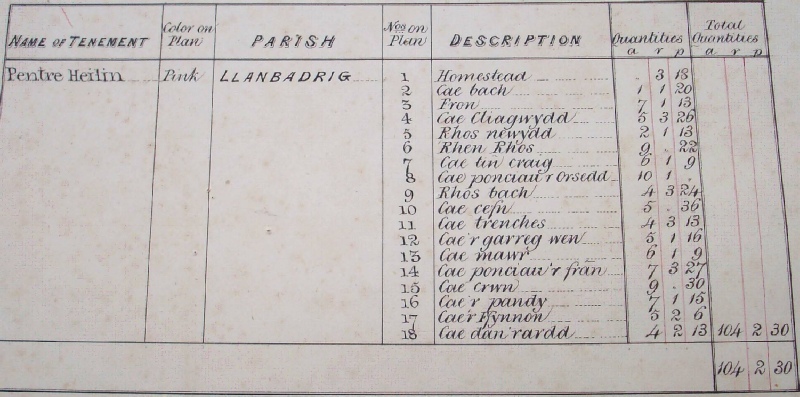 NAME OF TENEMENT Color on Plan PARISH Nos on Plan DESCRIPTION Quantities a r p Total Quantities a r p
Pentre Heilin Pink LLANBADRIG 1 Homestead . 3 18
2 Cae bach 1 1 20
3 Fron 7 1 13
4 Cae Cliagwydd 5 3 26
5 Rhos newydd 2 1 13
6 Rhen Rhos 9 . 22
7 Cae tin craig 6 1 9
8 Cae ponciau'r Orsedd 10 1 .
9 Rhos bach 4 3 24
10 Cae cefn 5 . 36
11 Cae trenches 4 3 13
12 Cae'r garreg wen 5 1 16
13 Cae mawr 6 1 9
14 Cae ponciau'r frân 7 3 27
15 Cae crwn 9 . 30
16 Cae'r pandy 7 1 15
17 Cae'r Ffynnon 5 2 6
18 Cae dan'rardd 4 2 13 104 2 30
104 2 30